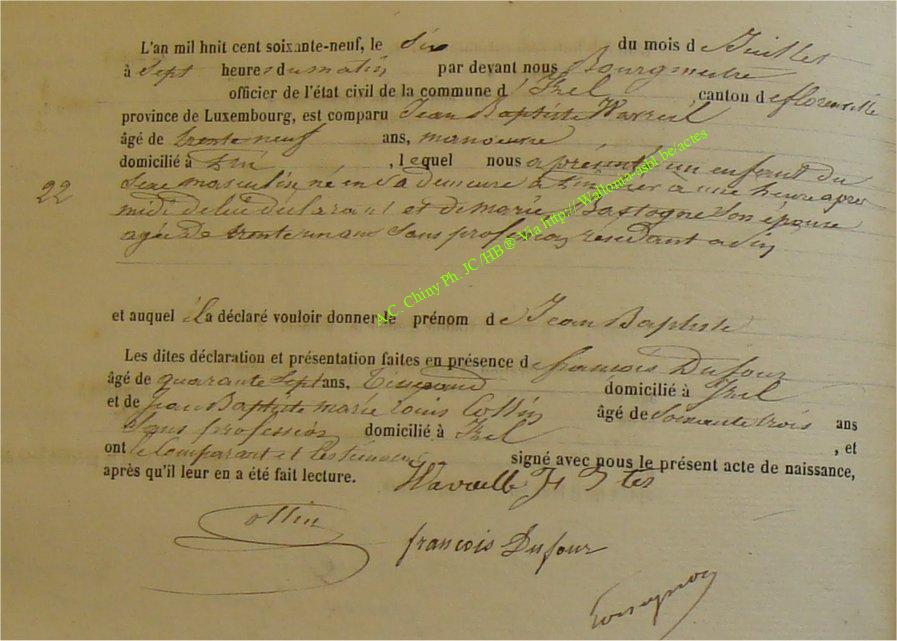 L'an mil huit cent soixante-neuf, le Six du mois d e Juillet
à Sept heures du matin par devant nous Bourgmestre
officier de l'état civil de la commune d' Izel canton d e florenville
province de Luxembourg, est comparu Jean Baptiste
âgé de trente neuf ans, manoeuvre
domicilié à , lequel nous a présenté un enfant du
22
Sexe masculin, né en Sa demeure à hier à une heure après
midi de lui déclarant et de marie Bastogne Son épouse
agée de trente un ans Sans profession, résidant
et auquel il a déclaré vouloir donner le prénom d e Jean Baptiste
Les dites déclaration et présentation faites en présence d e françois Dufour
âgé de quarante Sept ans, Tisserand domicilié à Izel
et de Jean Baptiste marie Louis Collin âgé de Soixante trois ans
Sans profession domicilié à Izel , et
ont le Comparant et les témoins signé avec nous le présent acte de naissance,
après qu'il leur en a été fait lecture.
Collin
françois Dufour
A.C. Chiny Ph. JC /HB® Via http://Wallonia-asbl.be/actes